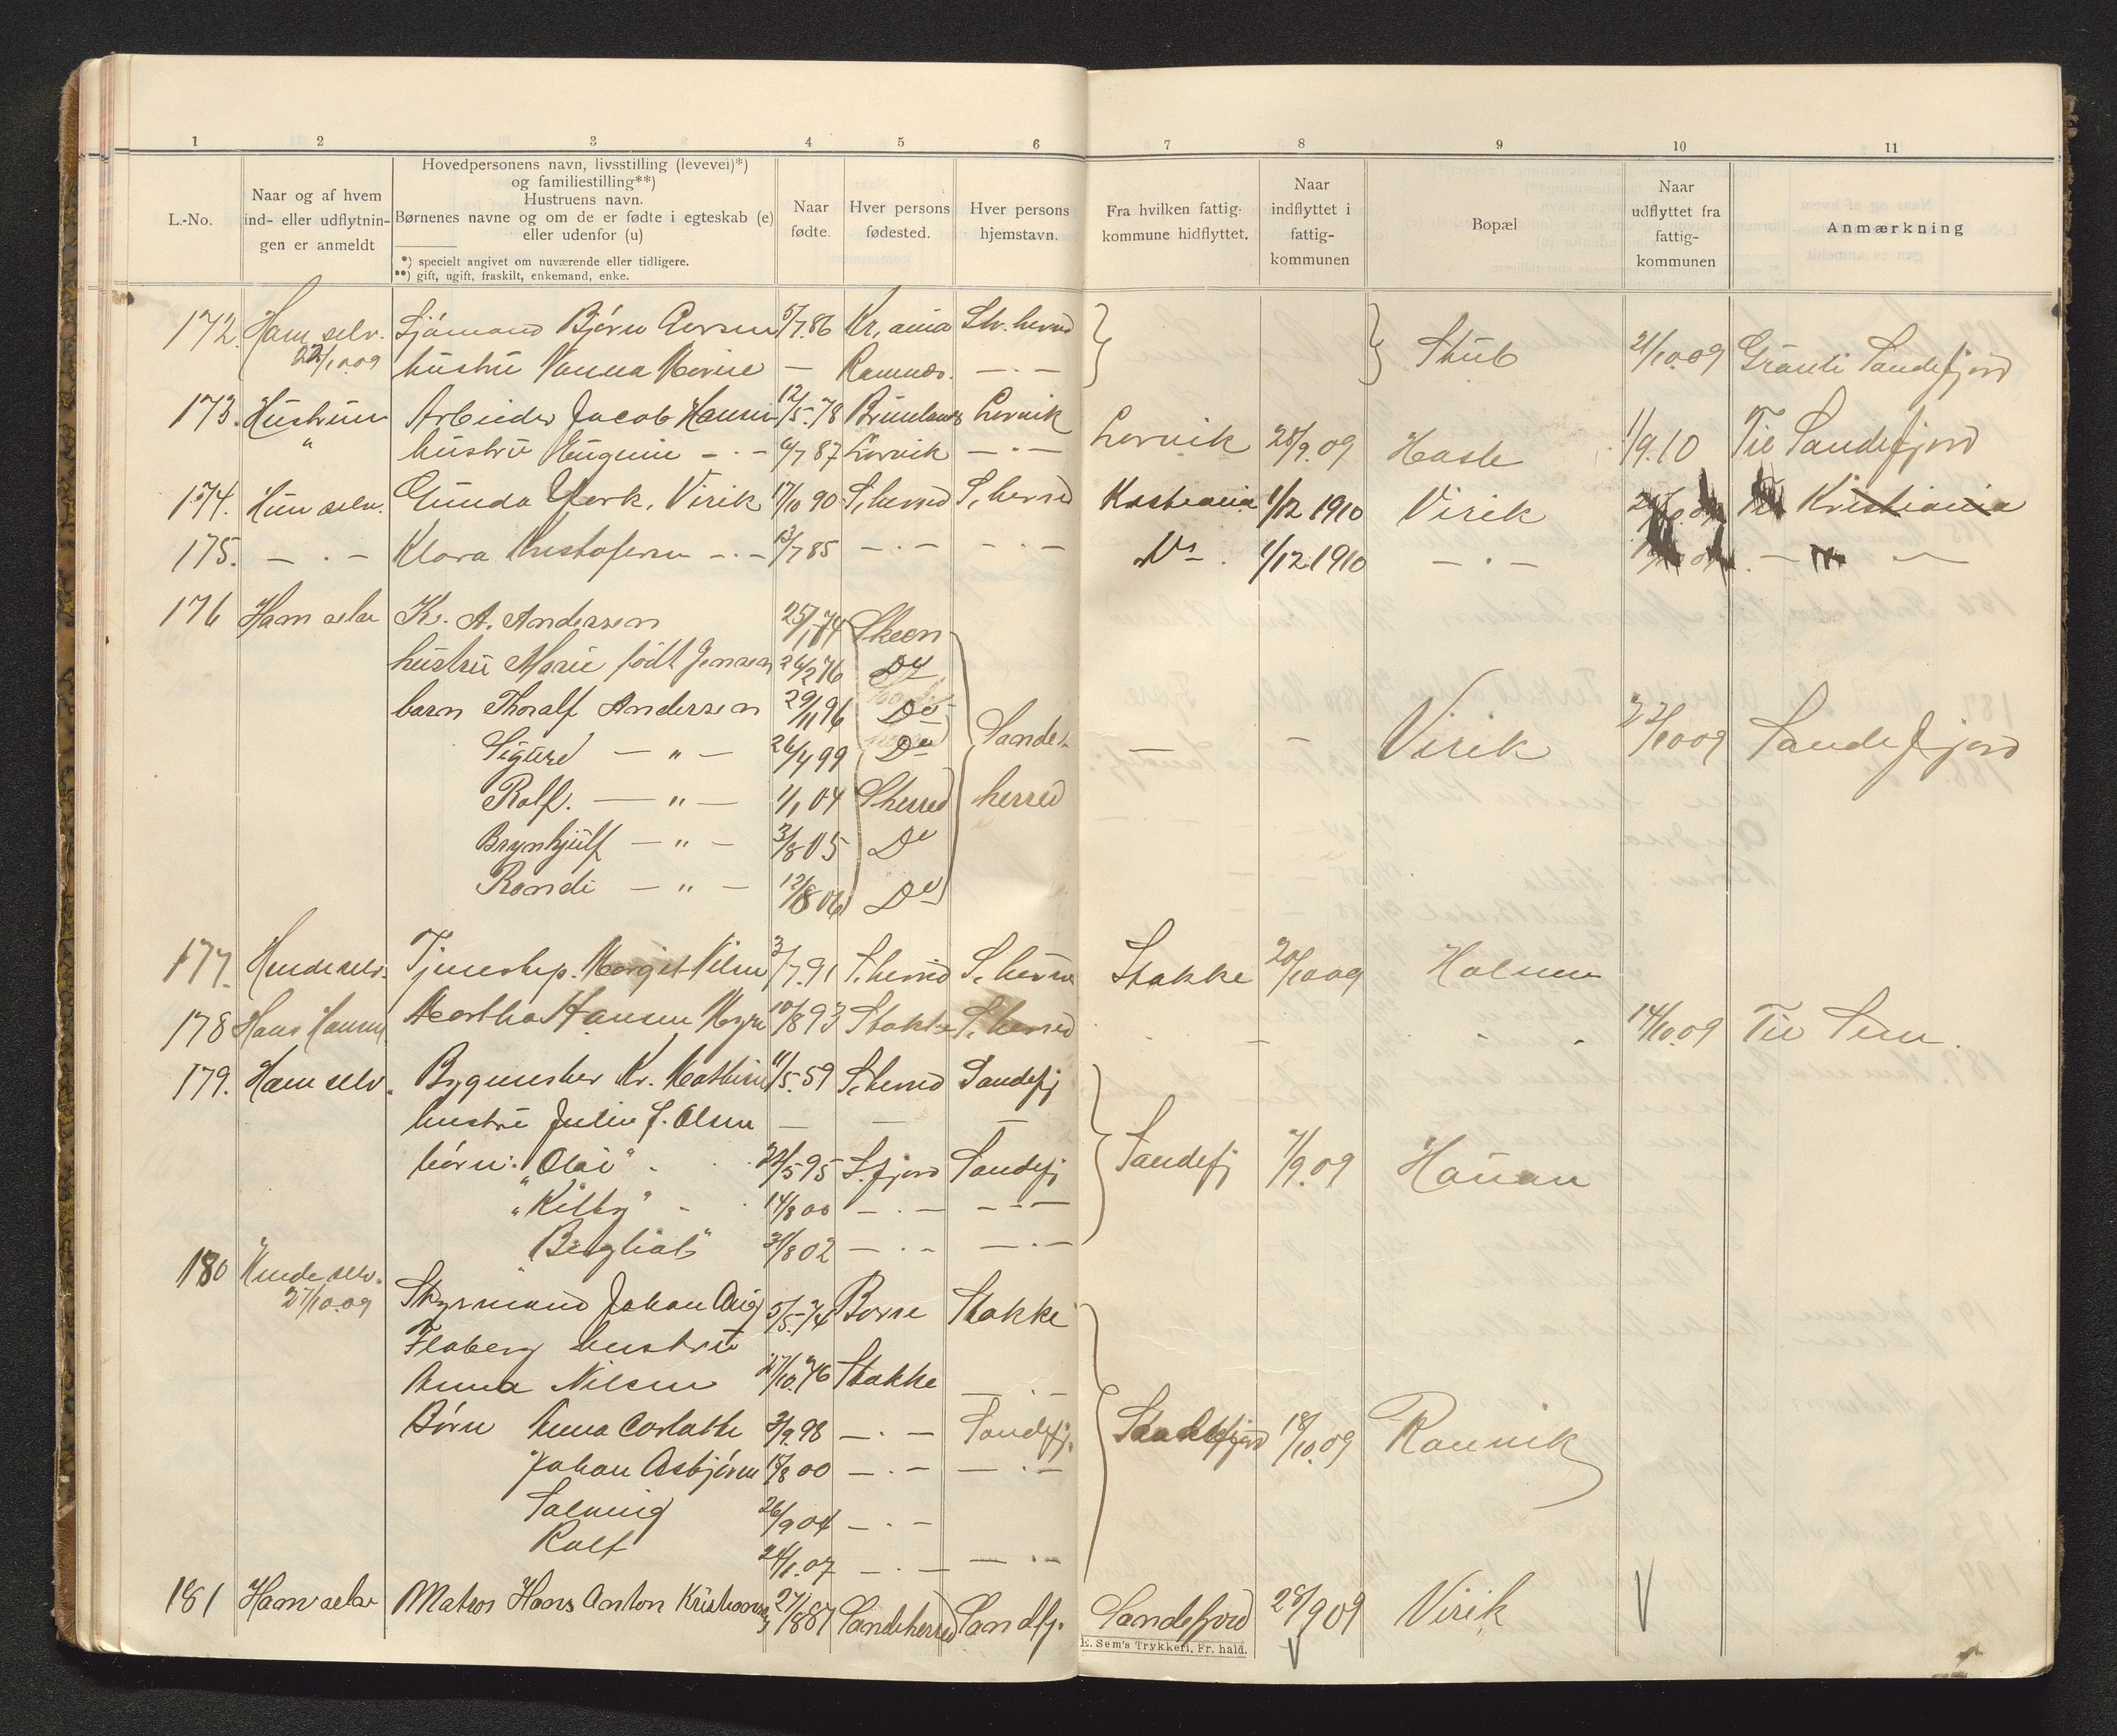 1 2 3 4 5 6 7 8 9 10 11
L.-No.
Naar og af hvem
ind- eller udflytnin-
gen er anmeldt
Hovedpersonens navn, livsstilling (levevei)*)
og familiestilling**)
Hustruens navn.
Børnenes navne og om de er fødte i egteskab (e)
eller udenfor (u)
*) specielt angivet om nuværende eller tidligere.
**) gift, ugift, fraskilt, enkemand, enke.
Naar
fødte.
Hver persons
fødested.
Hver persons
hjemstavn.
Fra hvilken fattig-
kommune hidflyttet.
Naar
indflyttet i
fattig-
kommunen
Bopæl
Naar
udflyttet fra
fattig-
kommunen
Anmærkning
172. Ham selv. Sjömand Björn 5/7.86 Kr.ania Stub 21/10.09 Sandefjord
22/10.09 hustru Ramnæs. — . —
173. Hustruen Arbeider Jacob Hansen 12/5.78 Brunlanes Larvik
" hustru Eugenie — . — 6/7 87 Larvik — . — Larvik 28/9.09 Hasle 1/9.10 Til Sandefjord
174. Hun selv. Gunda Virik 17/10 90 S.herred S.herred Kristiania 1/12 1910 Virik Kristiania
175. — . — Klara Kristofersen — . — 12/7 85 — . — — . — Do . 1/12 1910 — . —
176 Ham selv K. A. Andersen 25/1 74 Skeen
hustru Marie födt Jensen 26/2 76 Do
barn Thoralf Andersen 29/11 96 Do
Sigurd — " — 26/4 99 Do Sande- — — Virik 22/10 09 Sandefjord
Rolf. — " — 1/1 04 S.herred herred
Brynhjulf — " — 3/8 05 Do
Randi — " — 12/8 06 Do
177. Hende selv. Margit Nilsen 3/7.91 S.herred S.herred Stokke 20/10 09 Holmen
178 Hans Hansen Martha Hansen 10/8 93 Stokke S.herred 14/10.09 Til Sem.
179. Ham selv. Bygmester Kr. Mathisen 11/5.59 S.herred Sandefj
hustru Julie f. Olsen — — —
börn: "Olai" 24/5 95 S.fjord Sandefj Sandefj 7/9.09 Hauan
14/8 00 — . — — . —
"Bergliot" 31/8 02 — . — — . —
180 Hende selv.
27/10.09 Styrmand Johan Aug 5/5.74 Borre Stokke
Floberg hustru
Anna Nilsen 27/10.76 Stokke — . —
Börn Anna 3/9.98 — . — Sandefj. Sandefjord 18/10.09 Ranvik
Johan Asbjörn 18/8 00 — . — — . —
Solveig 26/9 04 — . —
Rolf 24/1.07 — . — — . —
181 Ham selv Matros Hans Anton Kristiansen 27/8 87 Sandeherred Sandfj. Sandefjord 28/9 09 Virik V
E. Sem's Trykkeri, Fr.hald. V